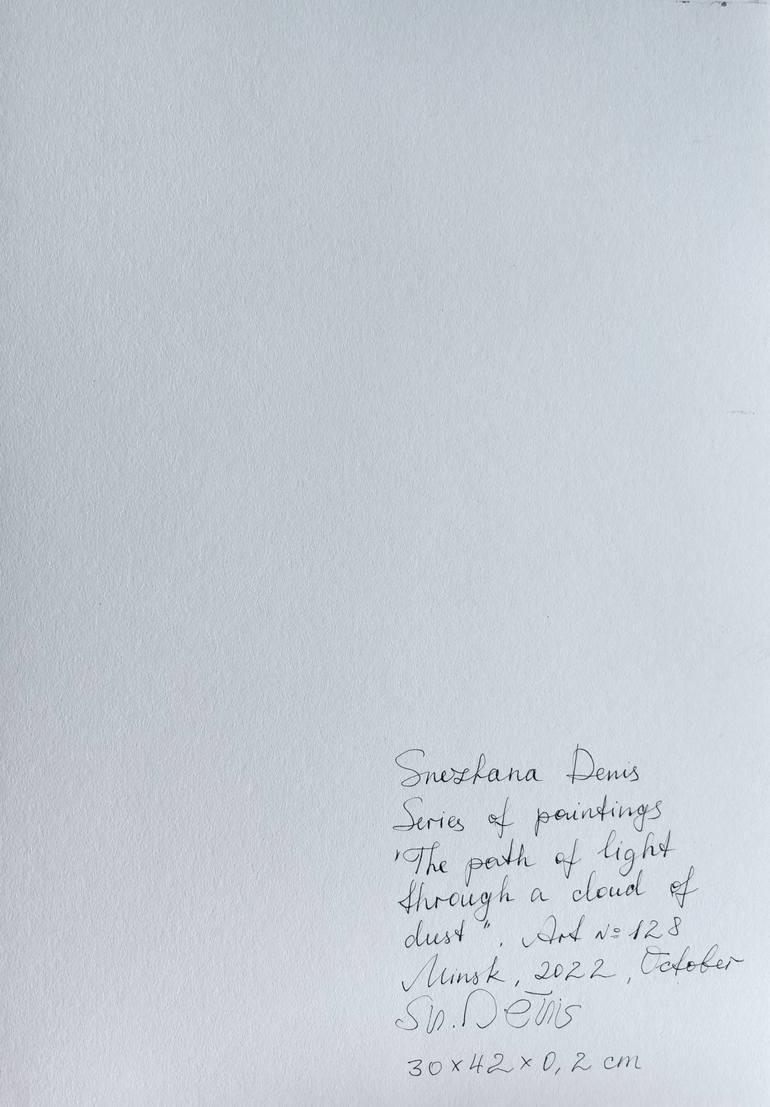 Snezhana Denis
Series of paintings
"The path of light
through a cloud of
dust". Art №128
Minsk, 2022, October
Sn.Denis
30×42×0,2 cm